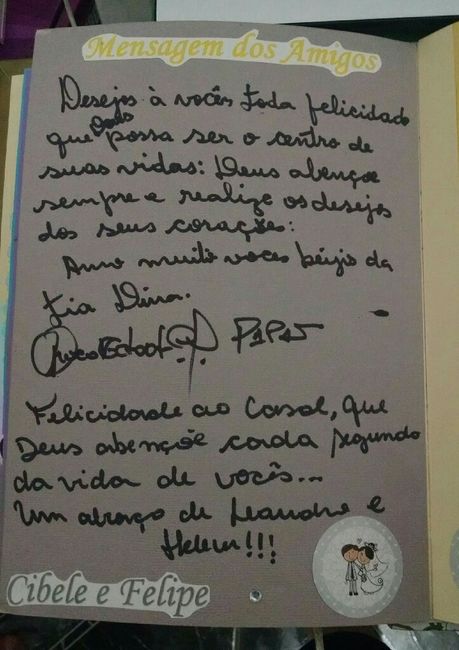 Mensagem dos Amigos
Desejos à vocês toda felicidade
que Deus possa ser o centro de
suas vidas: Deus abençoe
sempre e realize os desejos
dos seus corações:
Amo muito voces beijo da
tia Dina.
Felicidade ao Casal, que
Deus abençõe cada segundo
da vida de vocês...
Um abraço de Leandro e
Helem!!!
Cibele e Felipe